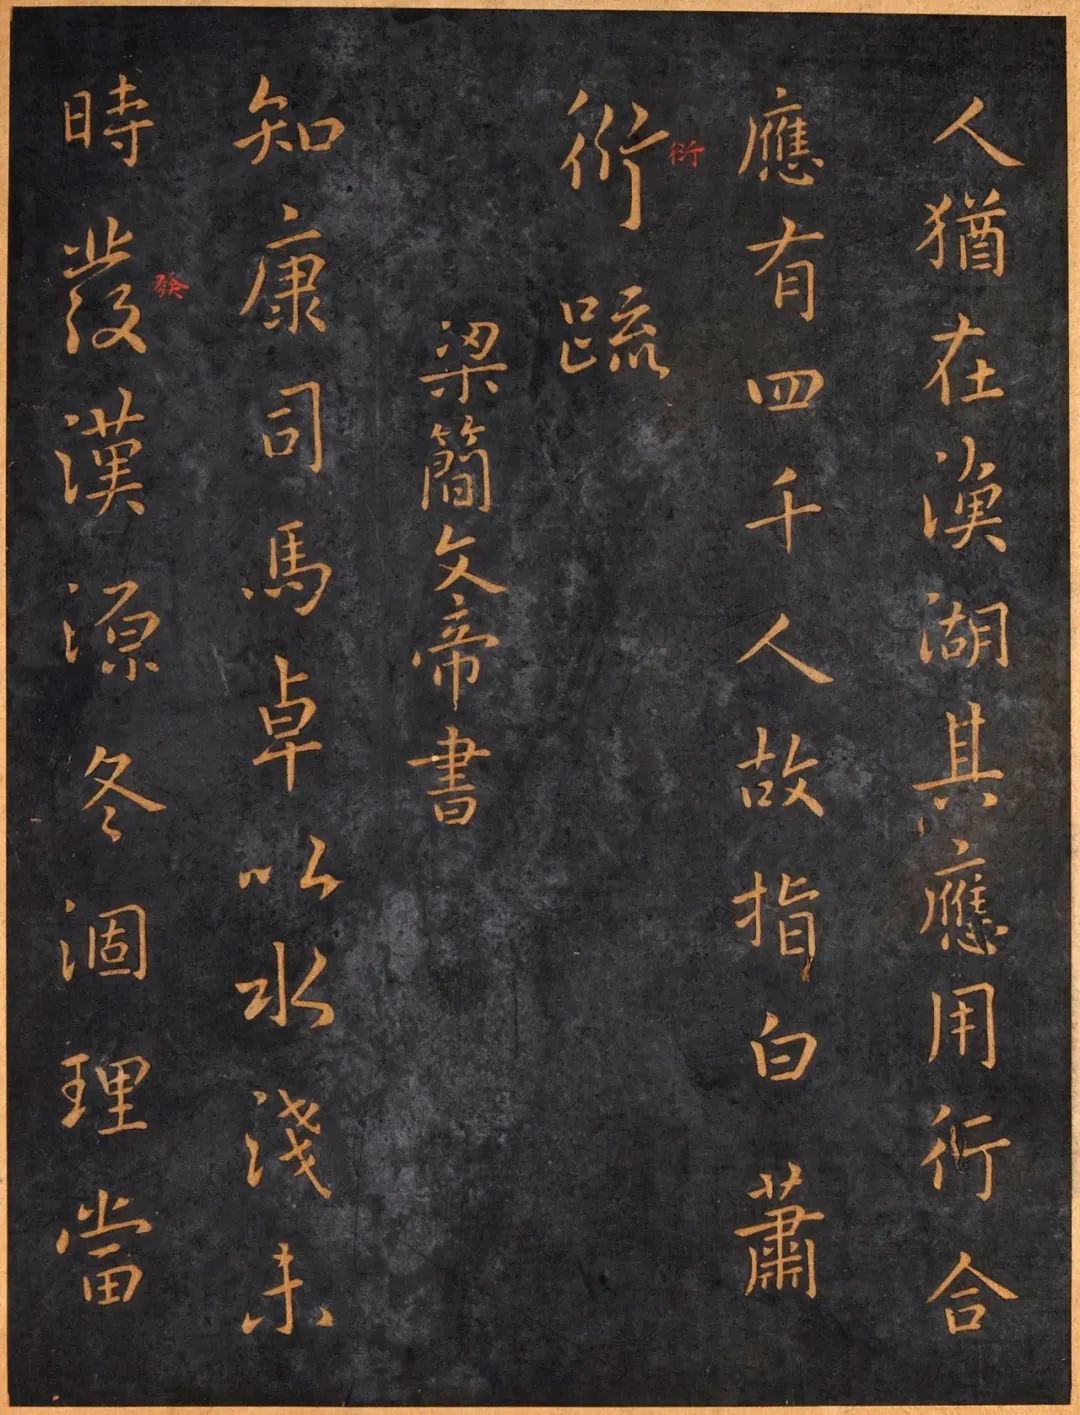 人猶在漁湖其應用衍合
應有四千人故指白蕭
衍疏
衍
梁簡文帝書
知康司馬卓以水淺未
時發漢源冬涸理當
發